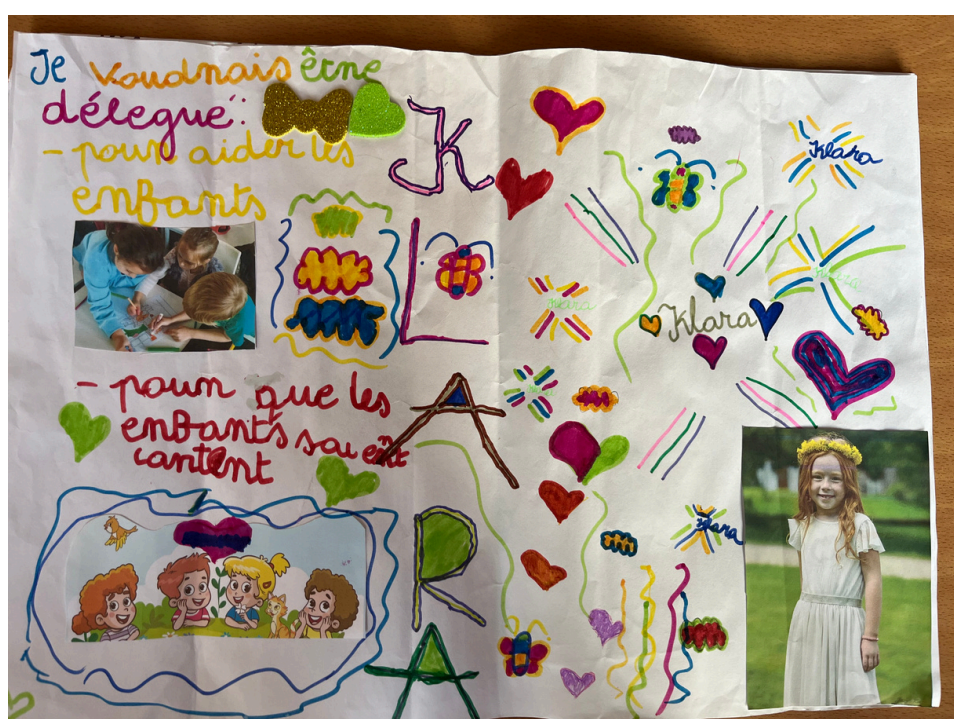 Je voudrais être
délegué :
- pour aider les
enfants
- pour que les
enfants soient
content
K
L
A
R
A
Klara
Klara
Klara
Klara
Klara